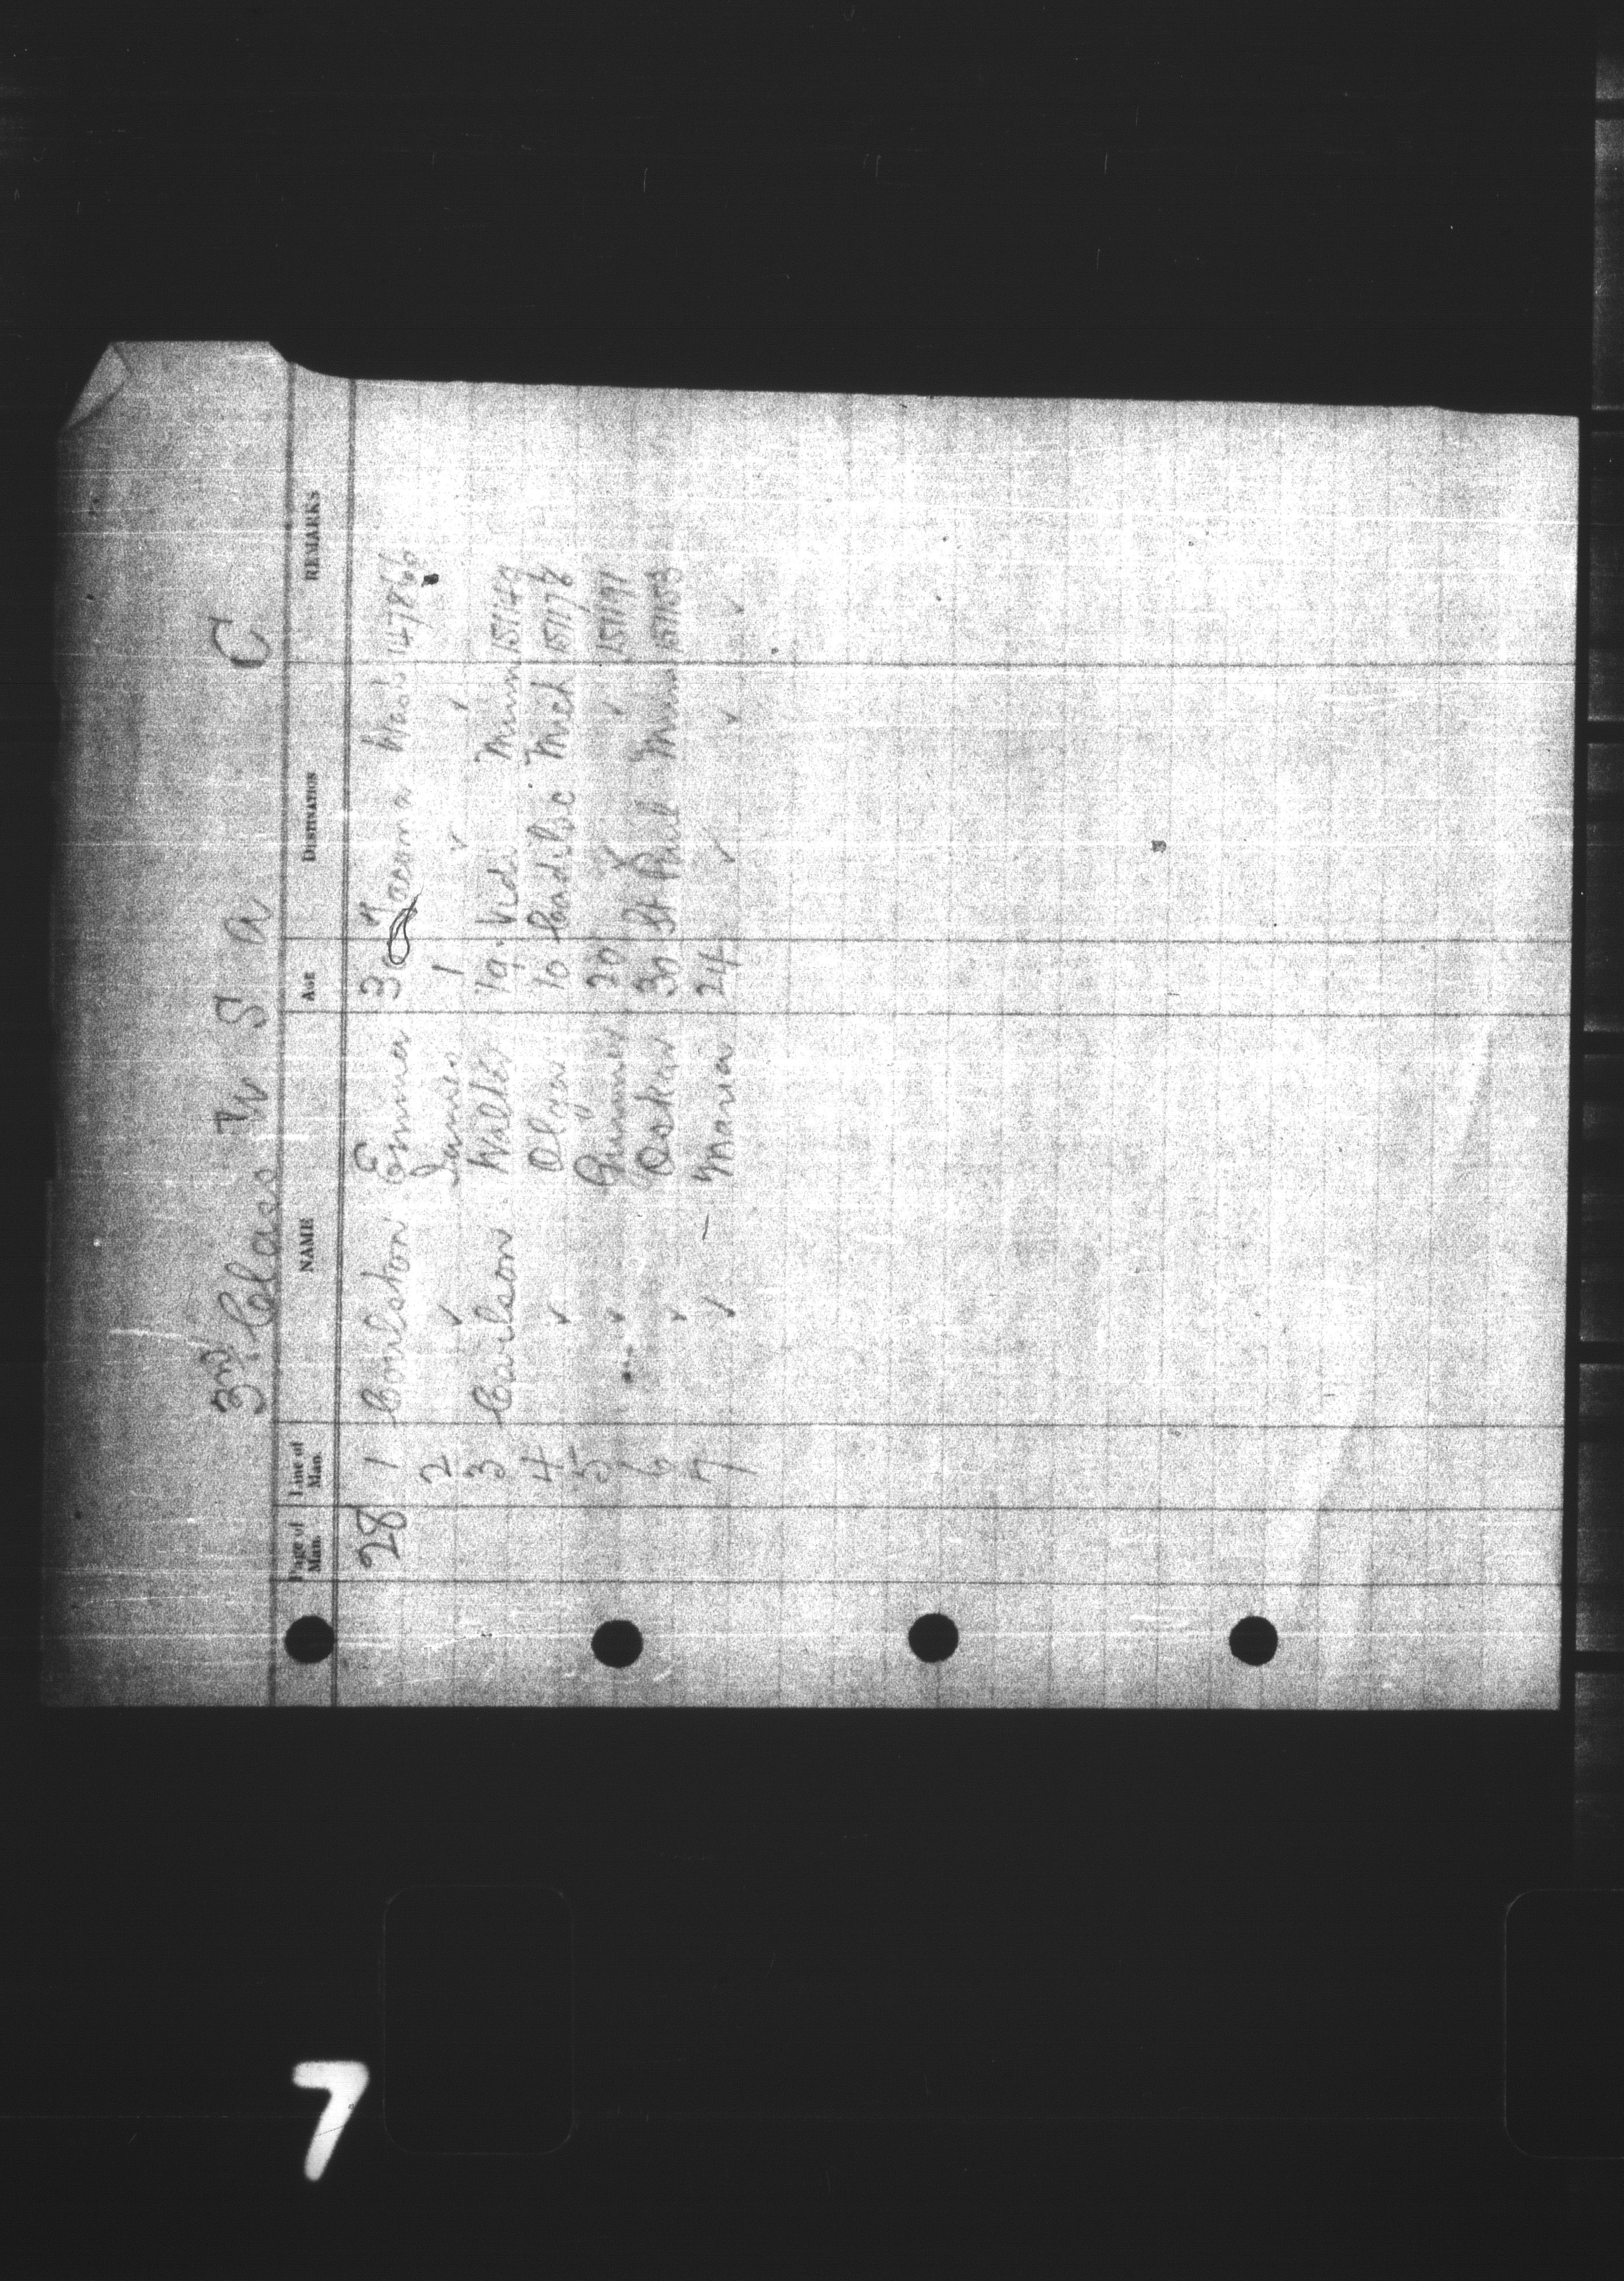 3rd Class U S A C
Page of Man. Line of Man. NAME AGE DESTINATION REMARKS
28 1 Coulston Emma 3 Tacoma Wash 147866
2 ✓ James 1 ✓ ✓
3 Carlson Walter 19 Vida Minn 151149
4 ✓ Olga 10 Sandiloc Mich 151176
5 ✓ Gunner 20 ✓ ✓ 151191
6 ✓ Oskar 30 St Paul Minn 151153
7 ✓ — Maria 24 ✓ ✓ ✓
7